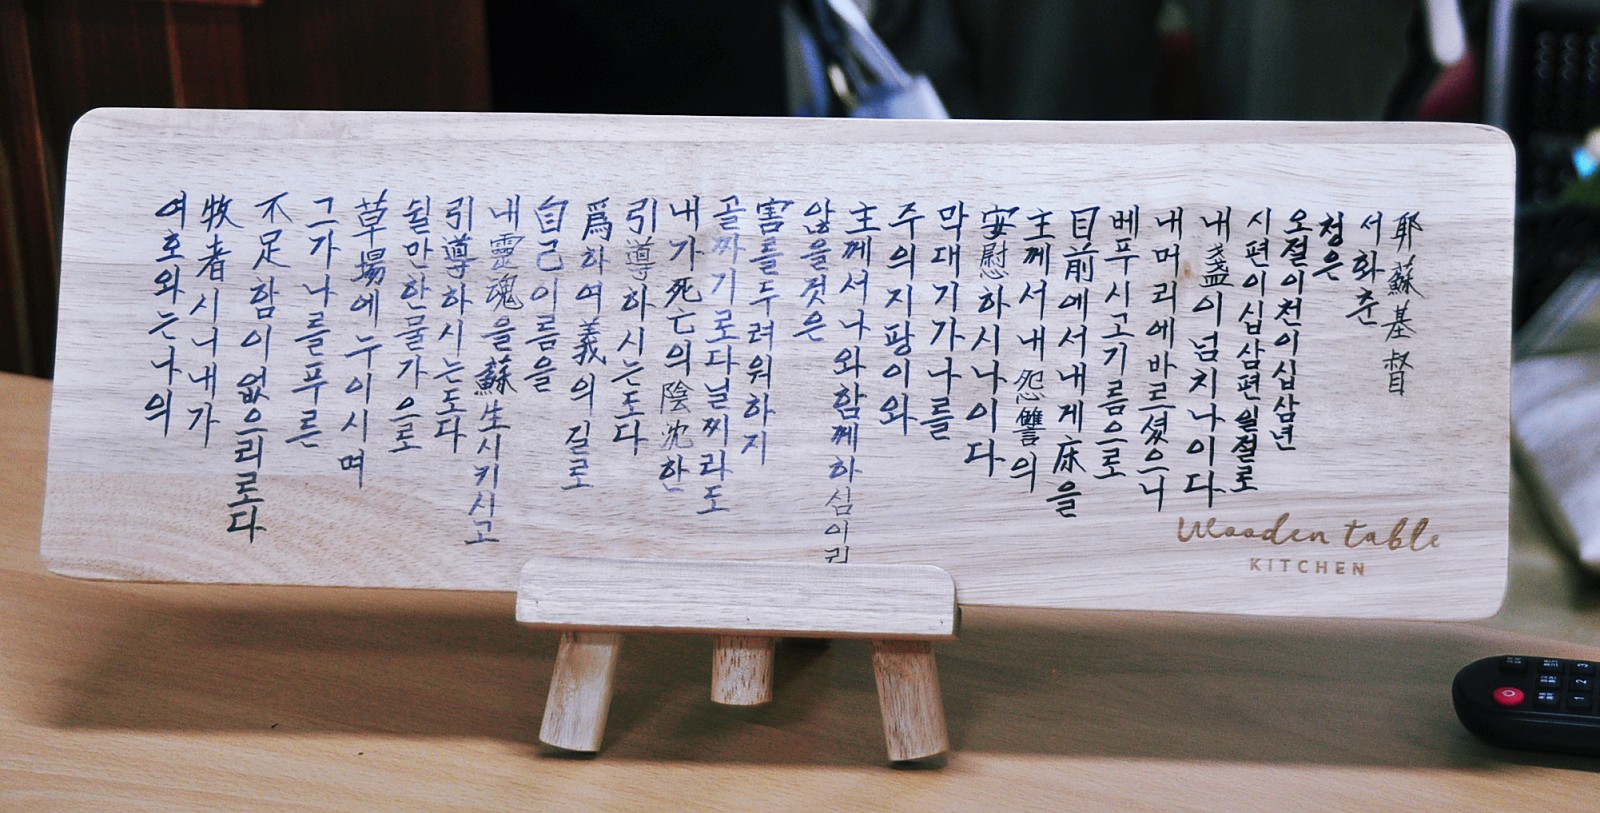 여호와는나의
牧者시니내가
不足함이없으리로다
그가나를푸른
草場에누이시며
쉴만한물가으로
引導하시는도다
내靈魂을蘇生시키시고
自己이름을
爲하여義의길로
引導하시는도다
내가死亡의陰沈한
골짜기로다닐찌라도
害를두려워하지
않을것은
主께서나와함께하심이라
주의지팡이와
막대기가나를
安慰하시나이다
主께서내怨讐의
目前에서내게床을
베푸시고기름으로
내머리에바르셨으니
내盞이넘치나이다
시편이십삼편일절로
오절이천이십삼년
청은
서화춘
耶蘇基督
Wooden table
KITCHEN